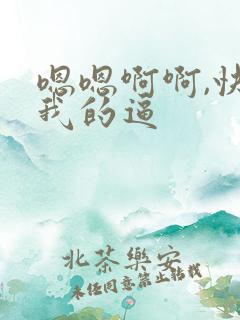 嗯嗯啊啊,快
我的逼
北茶樂安
未经同意禁止转载